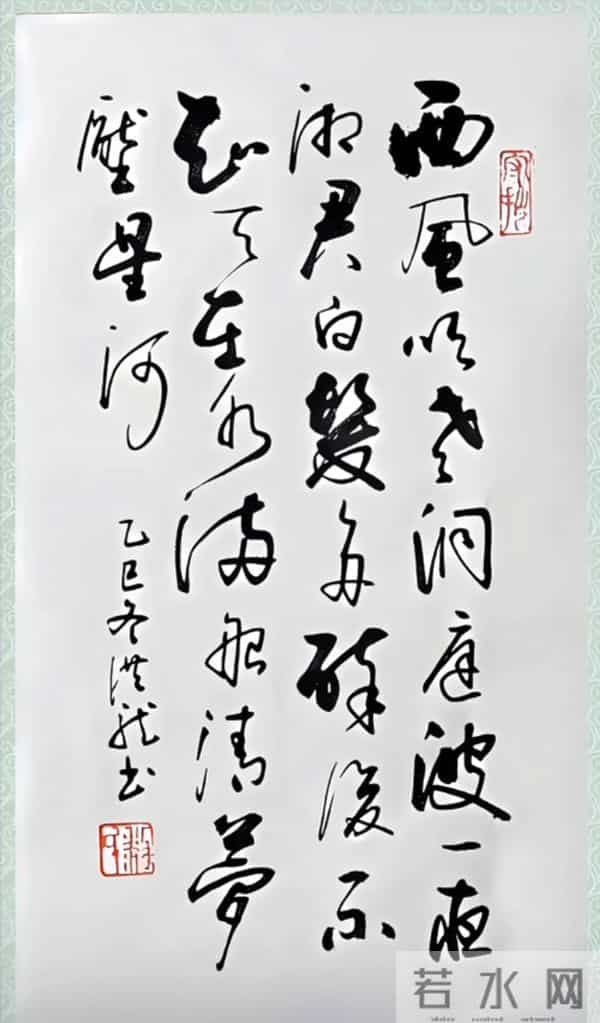 西風吹老洞庭波一夜
湘君白髮多醉後不
知天在水滿船清夢
壓星河
乙巳冬洪龍书
若水网